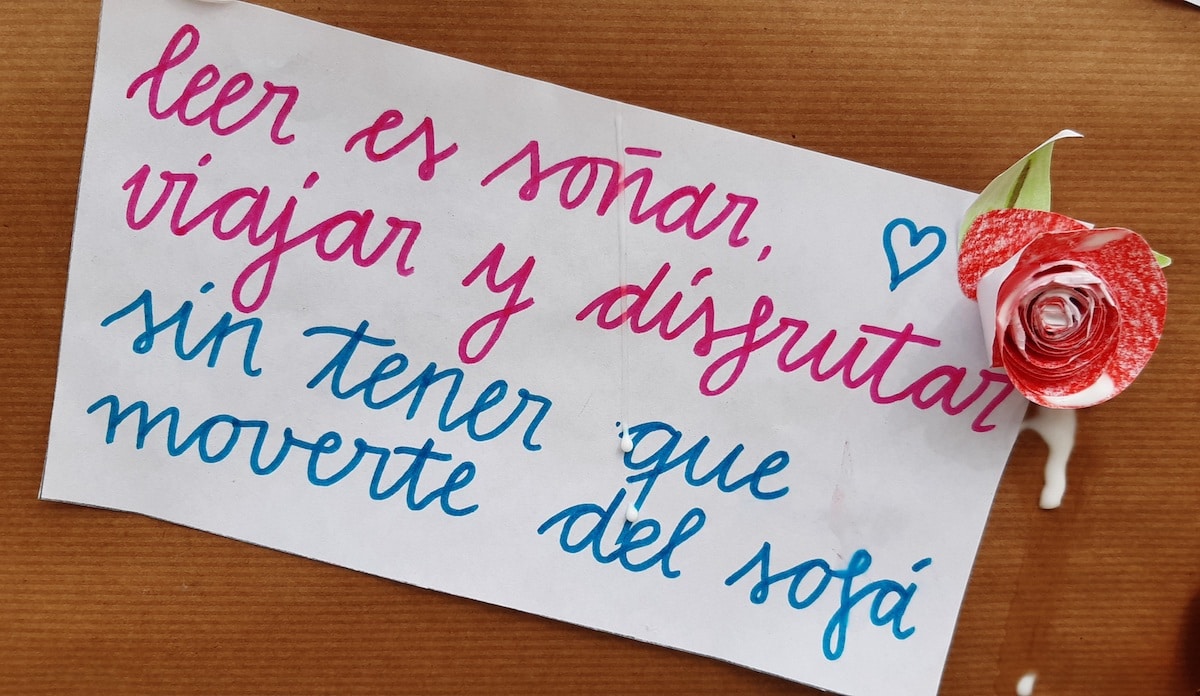 leer es soñar,
viajar y disfrutar
sin tener que
moverte del sofá